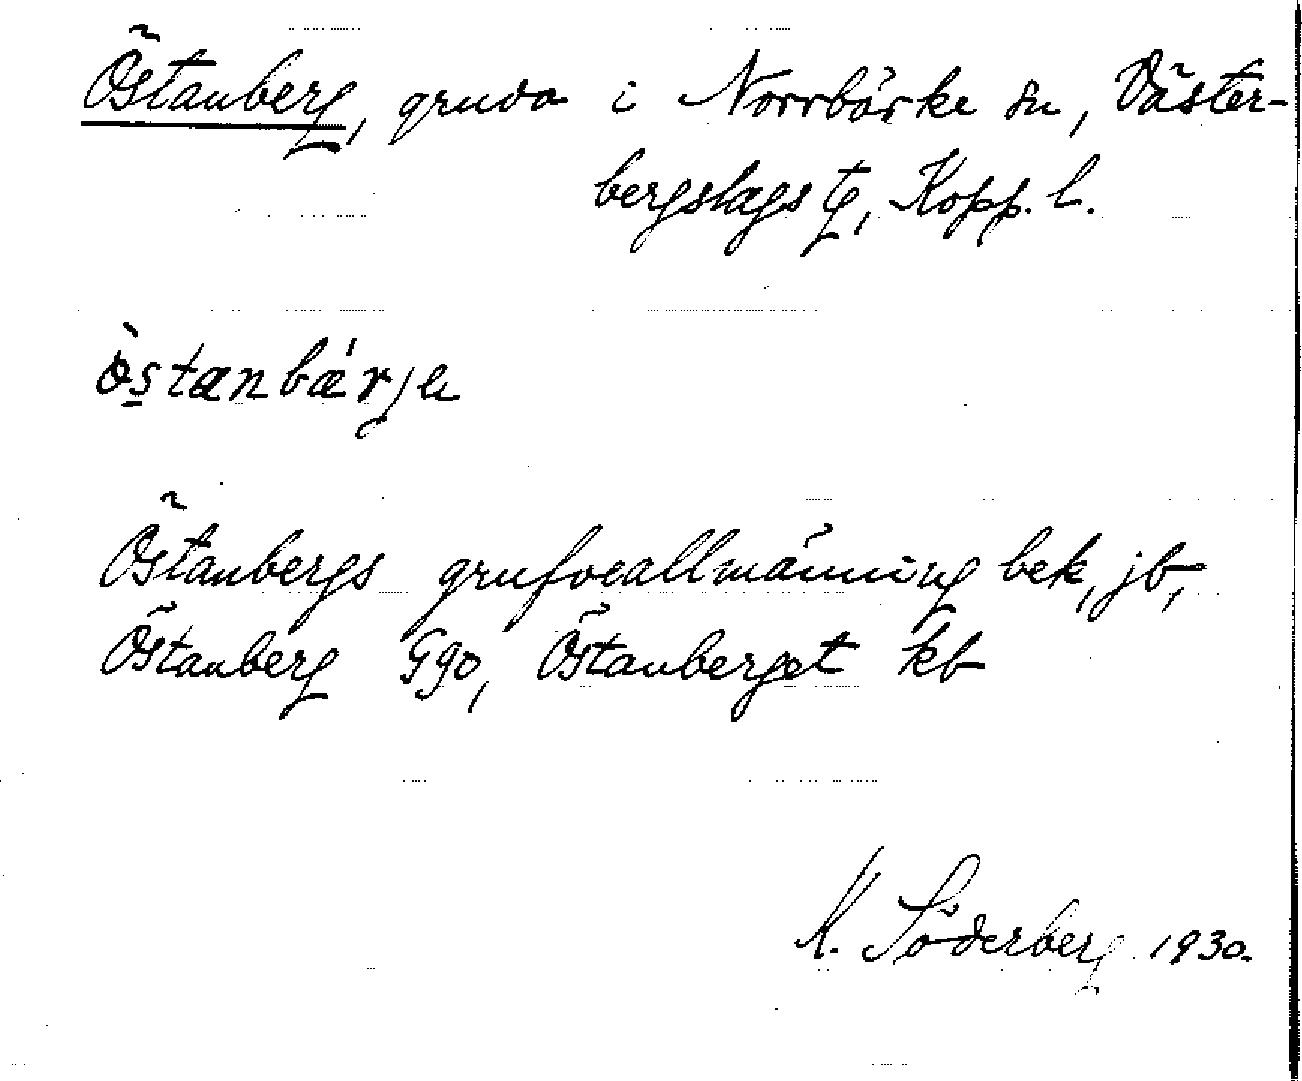 Östanberg, gruva i Norrbärke sn, Väster-
bergslags tg, Kopp. l.
òstanbǽrjə
Östanbergs grufveallmänning bek, jb,
Östanberg Ggo, Östanberget kb
K. Söderberg 1930.